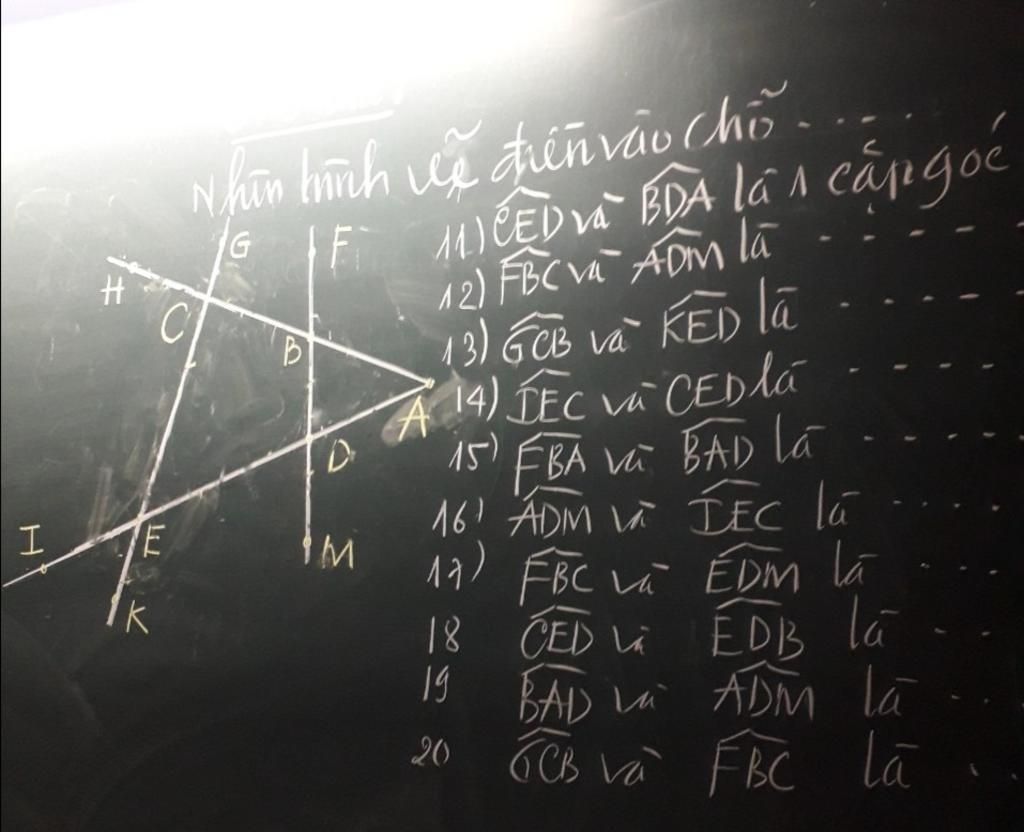 Nhìn hình vẽ điền vào chỗ .....
11) CED và BDA là 1 cặp góc
12) FBC và ADM là - - - - -
13) GCB và KED là - - - - -
14) IEC và CED là - - - -
15) FBA và BAD là - - - -
16) ADM và IEC là ....
17) FBC và EDM là ...
18 CED và EDB là ..
19 BAD và ADM là ..
20 GCB và FBC là ..
G
F
H
C
B
A
D
I
E
M
K